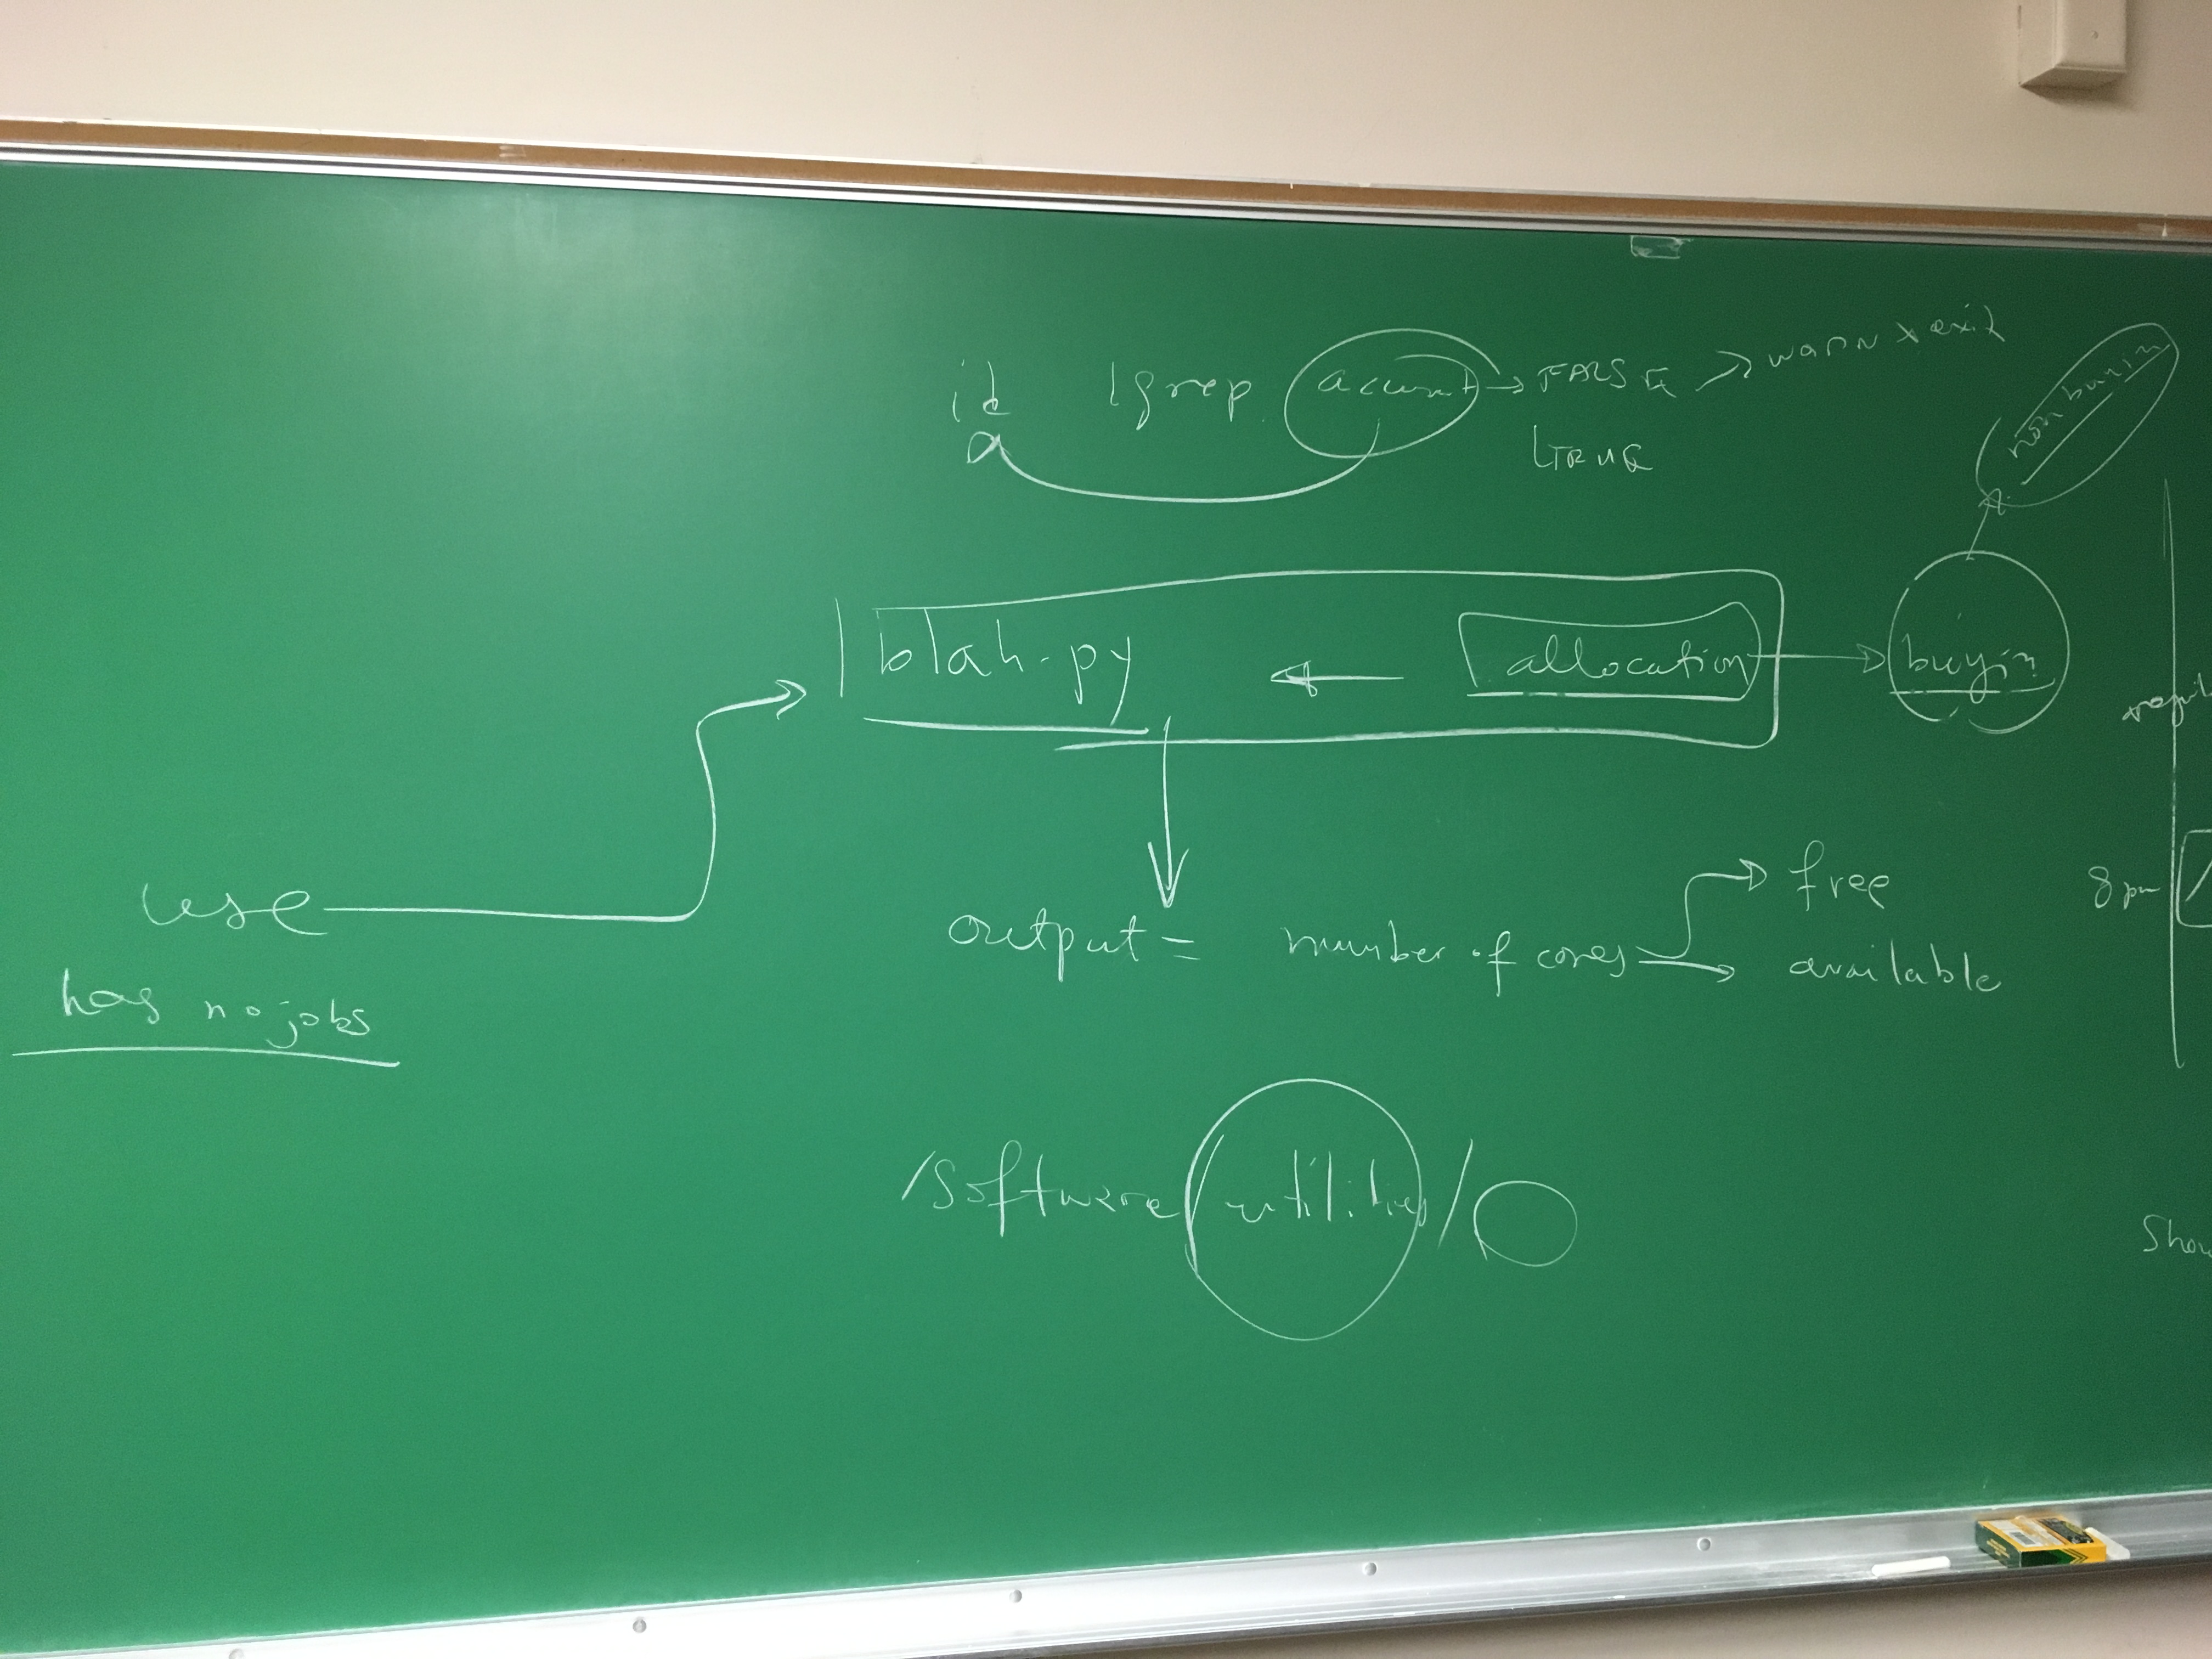 id | grep account → FALSE → warn & exit
TRUE
non buyin
blah.py ← allocation → buyin
use
has no jobs
output = number of cores → free
→ available
8 pm
/software/utilities/